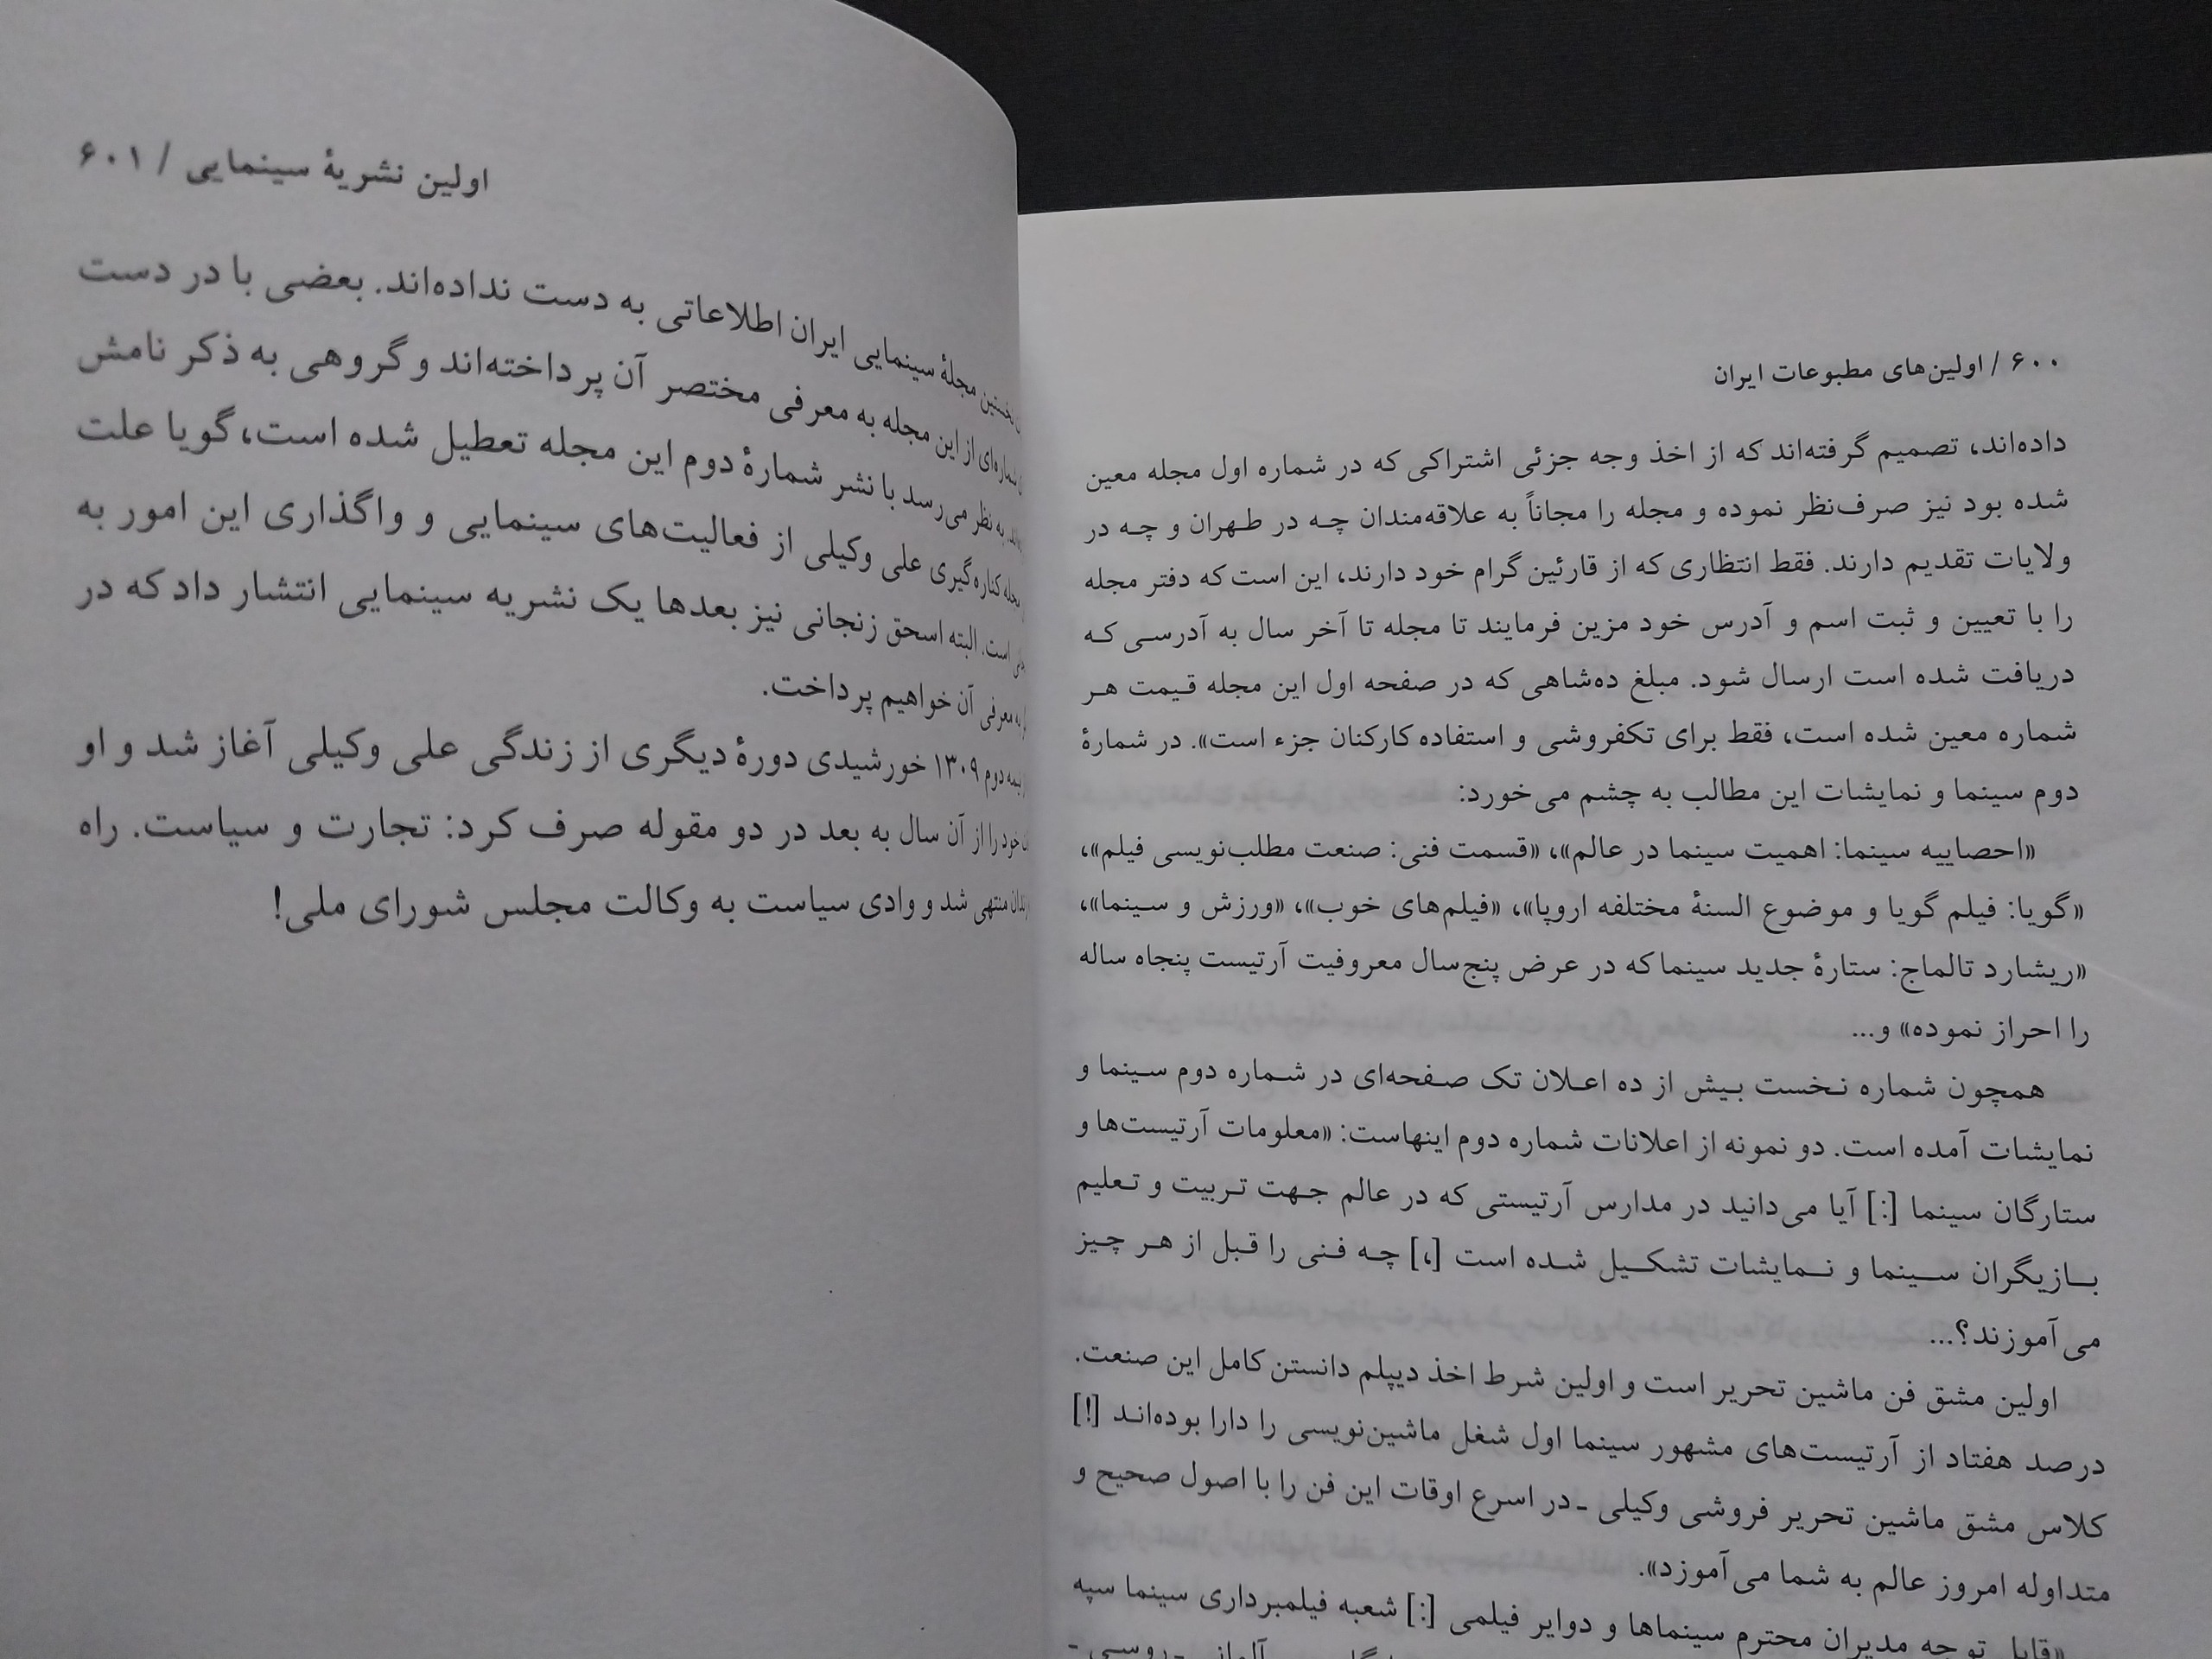 ۶۰۰ / اولین‌های مطبوعات ایران
داده‌اند، تصمیم گرفته‌اند که از اخذ وجه جزئی اشتراکی که در شماره اول مجله معین
شده بود نیز صرف‌نظر نموده و مجله را مجاناً به علاقه‌مندان چه در طهران و چه در
ولایات تقدیم دارند. فقط انتظاری که از قارئین گرام خود دارند، این است که دفتر مجله
را با تعیین و ثبت اسم و آدرس خود مزین فرمایند تا مجله تا آخر سال به آدرسی که
دریافت شده است ارسال شود. مبلغ ده‌شاهی که در صفحه اول این مجله قیمت هر
شماره معین شده است، فقط برای تکفروشی و استفاده کارکنان جزء است». در شمارهٔ
دوم سینما و نمایشات این مطالب به چشم می‌خورد:
«احصاییه سینما: اهمیت سینما در عالم»، «قسمت فنی: صنعت مطلب‌نویسی فیلم»،
«گویا: فیلم گویا و موضوع السنهٔ مختلفه اروپا»، «فیلم‌های خوب»، «ورزش و سینما»،
«ریشارد تالماج: ستارهٔ جدید سینما که در عرض پنج‌سال معروفیت آرتیست پنجاه ساله
را احراز نموده» و...
همچون شماره نخست بیش از ده اعلان تک صفحه‌ای در شماره دوم سینما و
نمایشات آمده است. دو نمونه از اعلانات شماره دوم اینهاست: «معلومات آرتیست‌ها و
ستارگان سینما [:] آیا می‌دانید در مدارس آرتیستی که در عالم جهت تربیت و تعلیم
بازیگران سینما و نمایشات تشکیل شده است [،] چه فنی را قبل از هر چیز
می‌آموزند؟...
اولین مشق فن ماشین تحریر است و اولین شرط اخذ دیپلم دانستن کامل این صنعت.
درصد هفتاد از آرتیست‌های مشهور سینما اول شغل ماشین‌نویسی را دارا بوده‌اند [!]
کلاس مشق ماشین تحریر فروشی وکیلی ـ در اسرع اوقات این فن را با اصول صحیح و
متداوله امروز عالم به شما می‌آموزد».
«قابل توجه مدیران محترم سینماها و دوایر فیلمی [:] شعبه فیلمبرداری سینما سپه
آلمانی ـ روسی ـ
اولین نشریهٔ سینمایی / ۶۰۱
نخستین مجلهٔ سینمایی ایران اطلاعاتی به دست نداده‌اند. بعضی با در دست
شماره‌ای از این مجله به معرفی مختصر آن پرداخته‌اند و گروهی به ذکر نامش
به نظر می‌رسد با نشر شمارهٔ دوم این مجله تعطیل شده است، گویا علت
مجله کناره‌گیری علی وکیلی از فعالیت‌های سینمایی و واگذاری این امور به
است. البته اسحق زنجانی نیز بعدها یک نشریه سینمایی انتشار داد که در
به معرفی آن خواهیم پرداخت.
نیمه دوم ۱۳۰۹ خورشیدی دورهٔ دیگری از زندگی علی وکیلی آغاز شد و او
خود را از آن سال به بعد در دو مقوله صرف کرد: تجارت و سیاست. راه
منتهی شد و وادی سیاست به وکالت مجلس شورای ملی!